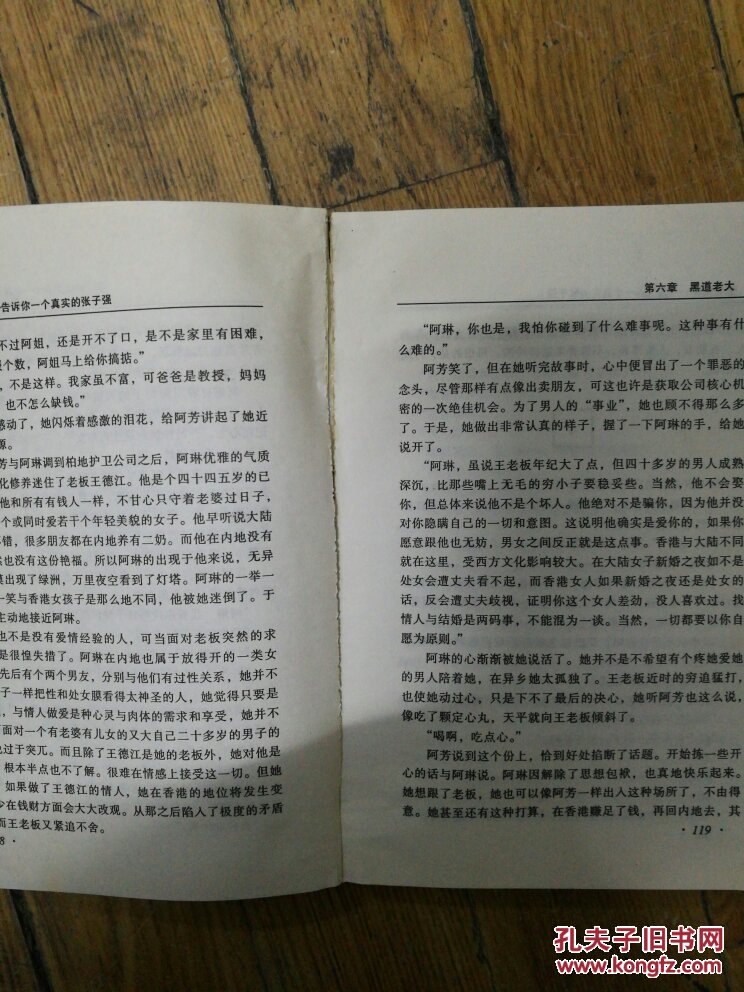 告诉你一个真实的张子强
不过阿姐，还是开不了口，是不是家里有困难，
个数，阿姐马上给你搞掂。”
，不是这样。我家虽不富，可爸爸是教授，妈妈
，也不怎么缺钱。”
感动了，她闪烁着感激的泪花，给阿芳讲起了她近
源。
芳与阿琳调到柏地护卫公司之后，阿琳优雅的气质
化修养迷住了老板王德江。他是个四十四五岁的已
他和所有有钱人一样，不甘心只守着老婆过日子，
个或同时爱若干个年轻美貌的女子。他早听说大陆
错，很多朋友都在内地养有二奶。而他在内地没有
也没有这份艳福。所以阿琳的出现于他来说，无异
漠出现了绿洲，万里夜空看到了灯塔。阿琳的一举一
一笑与香港女孩子是那么地不同，他被迷倒了。于
主动地接近阿琳。
也不是没有爱情经验的人，可当面对老板突然的求
是很惶失措了。阿琳在内地也属于放得开的一类女
先后有个两个男友，分别与他们有过性关系，她并不
子一样把性和处女膜看得太神圣的人，她觉得只要是
，与情人做爱是种心灵与肉体的需求和享受，她并不
面对一个有老婆有儿女的又大自己二十多岁的男子的
也过于突兀。而且除了王德江是她的老板外，她对他是
根本半点也不了解。很难在情感上接受这一切。但她
如果做了王德江的情人，她在香港的地位将发生变
少在钱财方面会大大改观。从那之后陷入了极度的矛盾
而王老板又紧追不舍。
8 ·
第六章 黑道老大
“阿琳，你也是，我怕你碰到了什么难事呢。这种事有什
么难的。”
阿芳笑了，但在她听完故事时，心中便冒出了一个罪恶的
念头，尽管那样有点像出卖朋友，可这也许是获取公司核心机
密的一次绝佳机会。为了男人的“事业”，她也顾不得那么多
了。于是，她做出非常认真的样子，握了一下阿琳的手，给她
说开了。
“阿琳，虽说王老板年纪大了点，但四十多岁的男人成熟
深沉，比那些嘴上无毛的穷小子要稳妥些。当然，他不会娶
你，但总体来说他不是个坏人。他绝对不是骗你，因为他并没
对你隐瞒自己的一切和意图。这说明他确实是爱你的，如果你
愿意跟他也无妨，男女之间反正就是这点事。香港与大陆不同
就在这里，受西方文化影响较大。在大陆女子新婚之夜如不是
处女会遭丈夫看不起，而香港女人如果新婚之夜还是处女的
话，反会遭丈夫歧视，证明你这个女人差劲，没人喜欢过。找
情人与结婚是两码事，不能混为一谈。当然，一切都要以你自
愿为原则。”
阿琳的心渐渐被她说活了。她并不是不希望有个疼她爱她
的男人陪着她，在异乡她太孤独了。王老板近时的穷追猛打，
也使她动过心，只是下不了最后的决心，她听阿芳也这么说，
像吃了颗定心丸，天平就向王老板倾斜了。
“喝啊，吃点心。”
阿芳说到这个份上，恰到好处掐断了话题。开始拣一些开
心的话与阿琳说。阿琳因解除了思想包袱，也真地快乐起来。
她想跟了老板，她也可以像阿芳一样出入这种场所了，不由得
意。她甚至还有这种打算，在香港赚足了钱，再回内地去，其
· 119 ·
孔夫子旧书网
www.kongfz.com